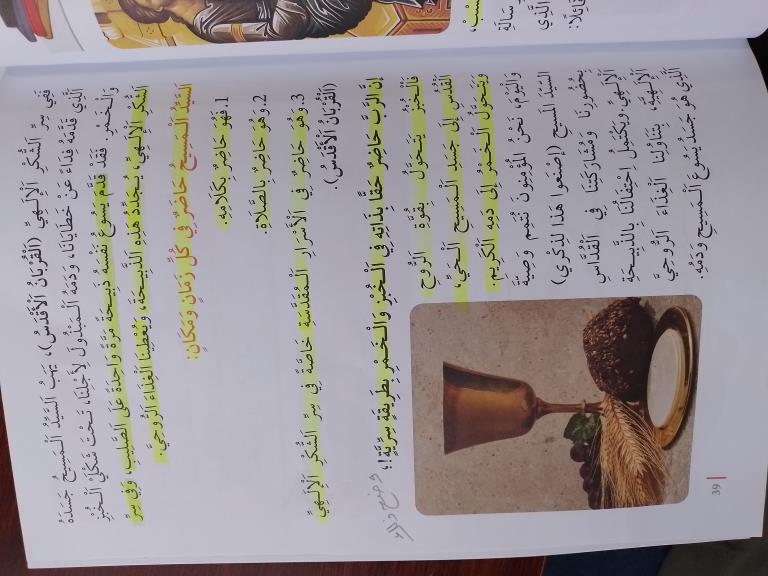 فَفِي سِرِّ الشُّكْرِ الْإِلَهِيِّ (الْقُرْبَانُ الْأَقْدَسُ)، يَهَبُ السَّيِّدُ الْمَسِيحُ جَسَدَهُ
الَّذِي قَدَّمَهُ فِدَاءً عَنْ خَطَايَانَا، وَدَمَهُ الْمَبْذُولَ لِأَجْلِنَا، تَحْتَ شَكْلَيِ الْخُبْزِ
وَالْخَمْرِ. فَقَدْ قَدَّمَ يَسُوعُ نَفْسَهُ ذَبِيحَةً مَرَّةً وَاحِدَةً عَلَى الصَّلِيبِ، وَفِي سِرِّ
الشُّكْرِ الْإِلَهِيِّ، يُجَدِّدُ هَذِهِ الذَّبِيحَةَ، وَيُعْطِينَا الْغِذَاءَ الرُّوحِيَّ.
السَّيِّدُ الْمَسِيحُ حَاضِرٌ فِي كُلِّ زَمَانٍ وَمَكَانٍ:
1. فَهُوَ حَاضِرٌ بِكَلَامِهِ.
2. وَهُوَ حَاضِرٌ بِالصَّلَاةِ.
3. وَهُوَ حَاضِرٌ فِي الْأَسْرَارِ الْمُقَدَّسَةِ خَاصَّةً فِي سِرِّ الشُّكْرِ الْإِلَهِيِّ
(الْقُرْبَانُ الْأَقْدَسُ).
إِنَّ الرَّبَّ حَاضِرٌ حَقًّا بِذَاتِهِ فِي الْخُبْزِ وَالْخَمْرِ بِطَرِيقَةٍ سِرِّيَّةٍ!،
فَالْخُبْزُ يَتَحَوَّلُ بِقُوَّةِ الرُّوحِ
الْقُدُسِ إِلَى جَسَدِ الْمَسِيحِ الْحَيِّ،
وَيَتَحَوَّلُ الْخَمْرُ إِلَى دَمِهِ الْكَرِيمِ.
وَالْيَوْمَ، نَحْنُ الْمُؤْمِنُونَ نُتَمِّمُ وَصِيَّةَ
السَّيِّدِ الْمَسِيحِ (اِصْنَعُوا هَذَا لِذِكْرِي)
بِحُضُورِنَا وَمُشَارَكَتِنَا فِي الْقُدَّاسِ
الْإِلَهِيِّ. وَيَكْتَمِلُ احْتِفَالُنَا بِالذَّبِيحَةِ
الْإِلَهِيَّةِ، بِتَنَاوُلِنَا الْغِذَاءَ الرُّوحِيَّ
الَّذِي هُوَ جَسَدُ يَسُوعَ الْمَسِيحِ وَدَمُهُ.
39